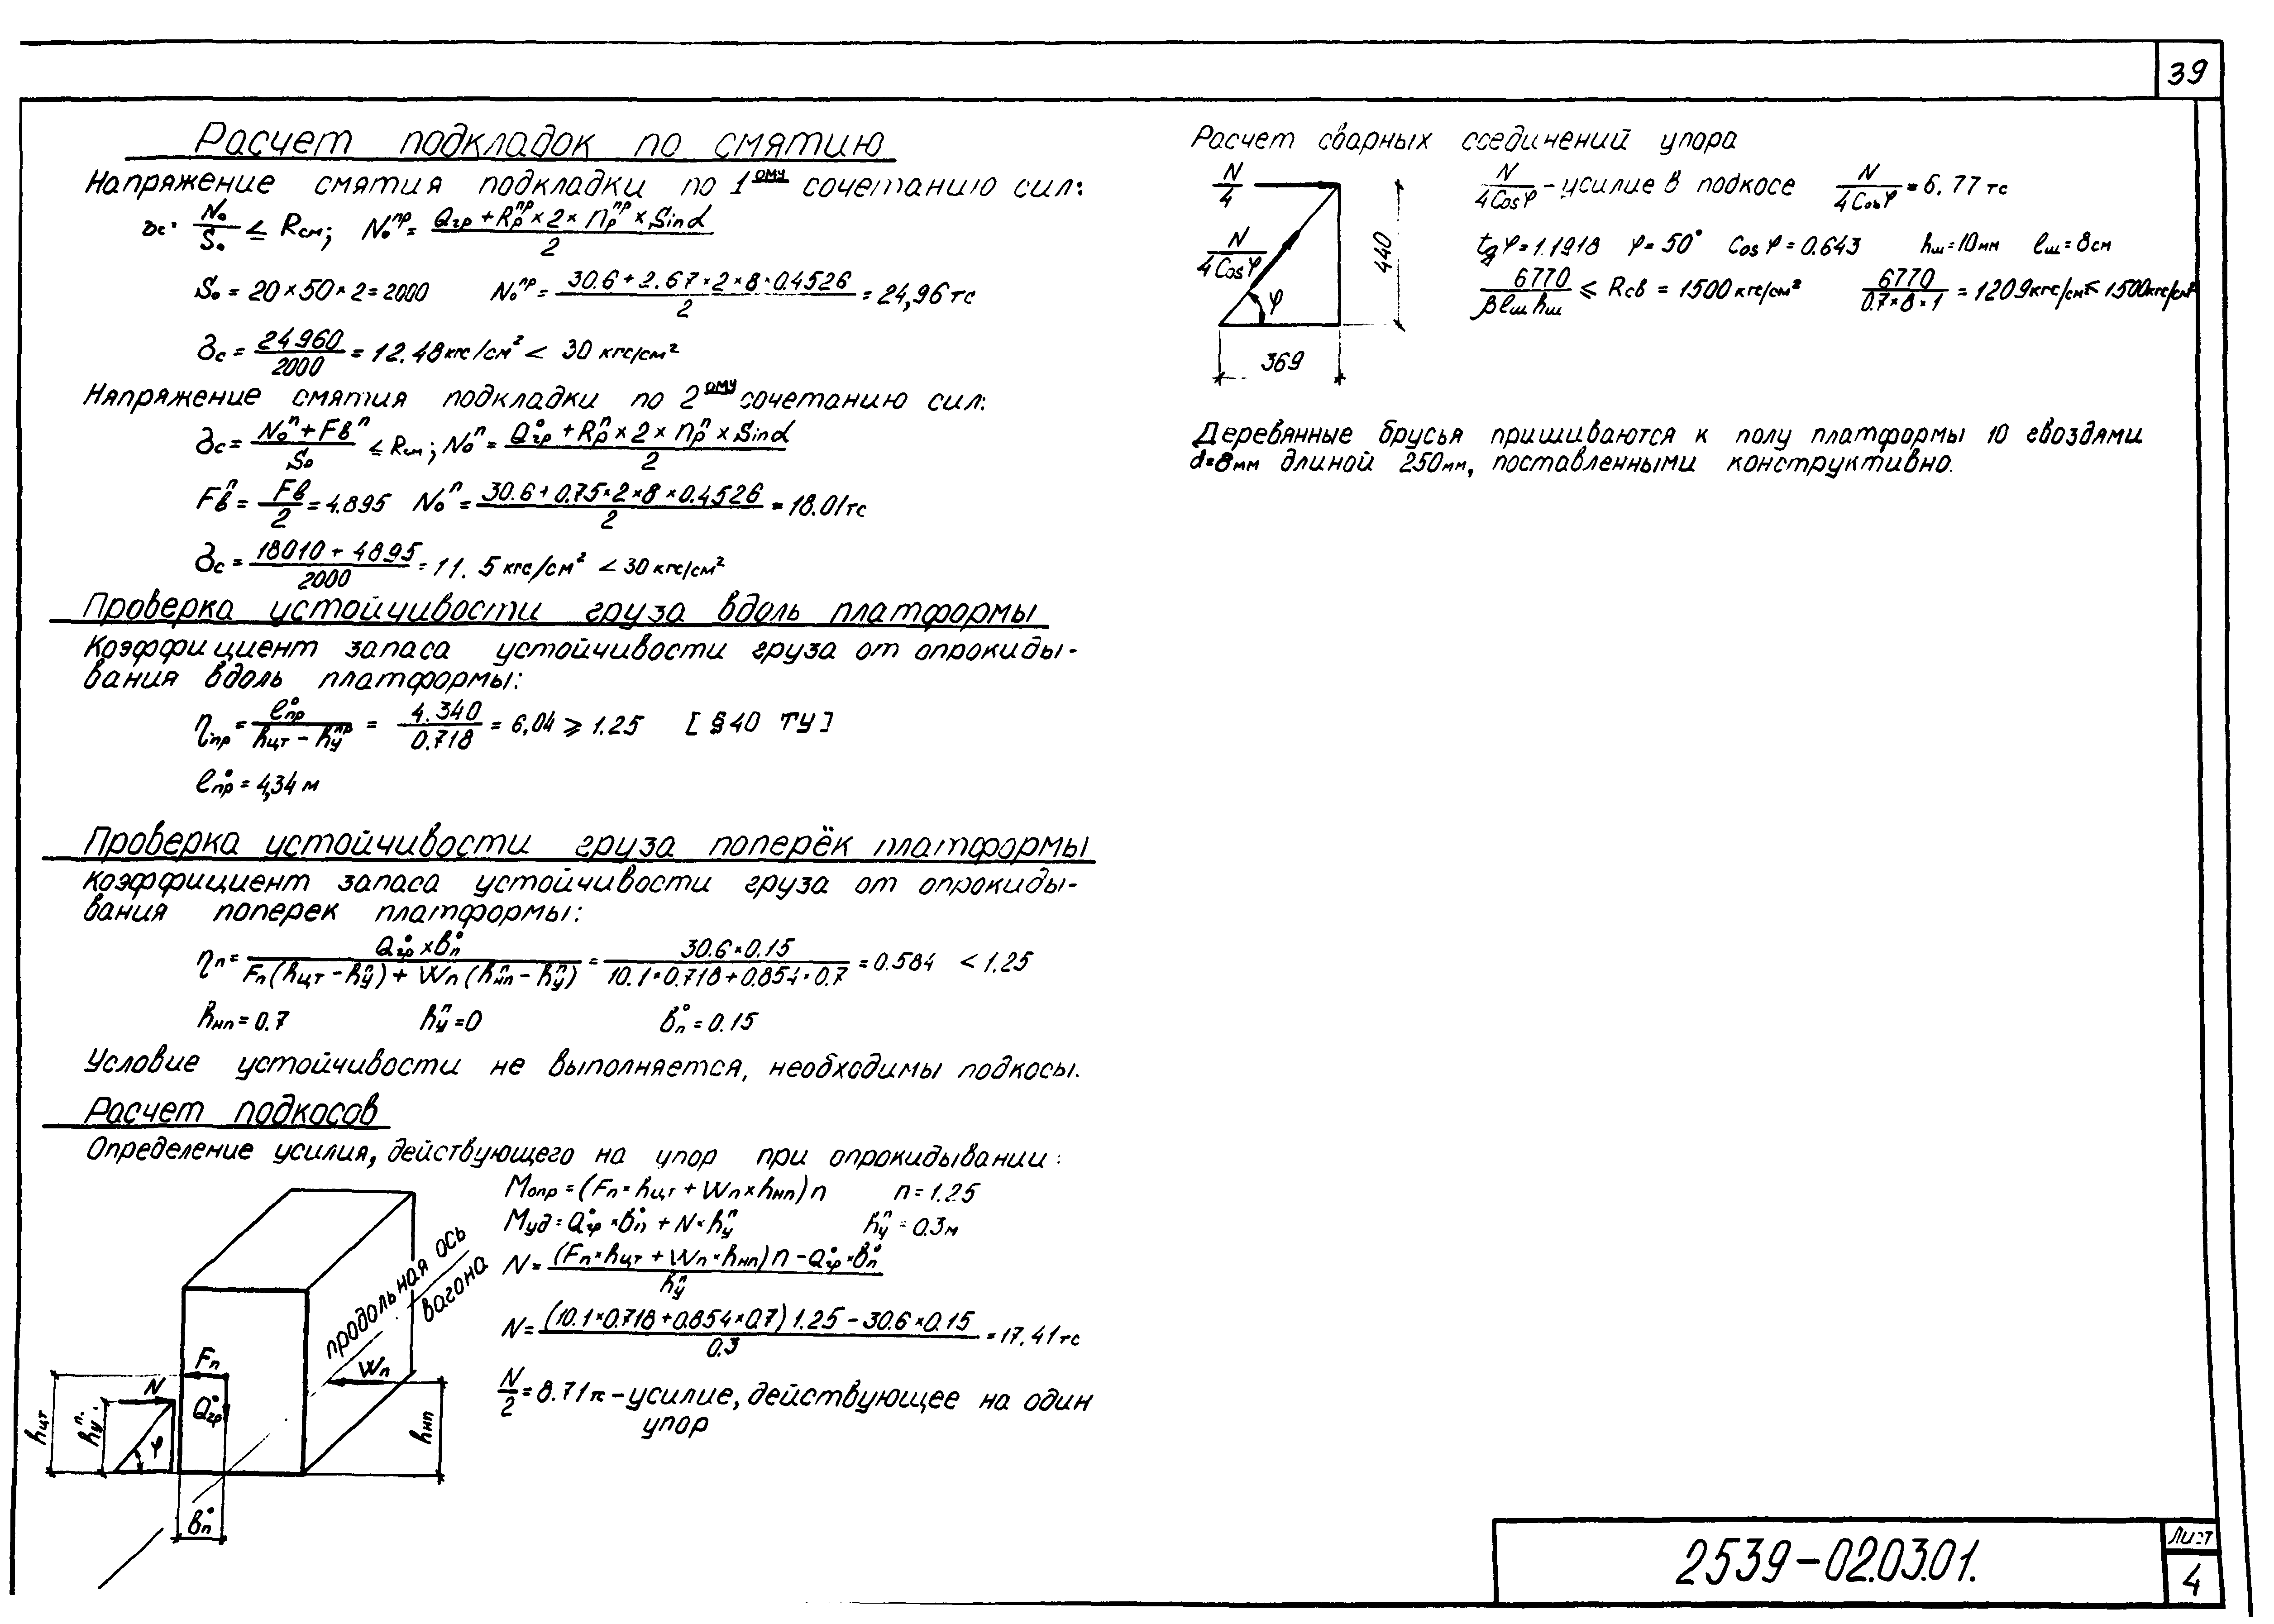 39
Расчет подкладок по смятию
Напряжение смятия подкладки по 1ому сочетанию сил:
σc = N₀/S₀ ≤ Rсм; N₀ᵖᵖ = (Qгр + Rрᵖᵖ × 2 × nрᵖᵖ × Sin α)/2
S₀ = 20 × 50 × 2 = 2000 N₀ᵖᵖ = (30.6 + 2.67 × 2 × 8 × 0.4526)/2 = 24,96 тс
σc = 24960/2000 = 12.48 кгс/см² < 30 кгс/см²
Напряжение смятия подкладки по 2ому сочетанию сил:
σc = (N₀ⁿ + Fвⁿ)/S₀ ≤ Rсм; N₀ⁿ = (Q°гр + Rрⁿ × 2 × nрⁿ × Sin α)/2
Fвⁿ = Fв/2 = 4.895 N₀ⁿ = (30.6 + 0.75 × 2 × 8 × 0.4526)/2 = 18.01 тс
σc = (18010 + 4895)/2000 = 11.5 кгс/см² < 30 кгс/см²
Проверка устойчивости груза вдоль платформы
Коэффициент запаса устойчивости груза от опрокиды-
вания вдоль платформы:
ηпр = l°пр/(hцт - hуᵖᵖ) = 4.340/0.718 = 6,04 ⩾ 1.25 [§40 ТУ]
l°пр = 4,34 м
Проверка устойчивости груза поперёк платформы
Коэффициент запаса устойчивости груза от опрокиды-
вания поперек платформы:
ηп = (Q°гр × в°п)/(Fп(hцт - hуⁿ) + Wп(hⁿнп - hуⁿ)) = (30.6 × 0.15)/(10.1 × 0.718 + 0.854 × 0.7) = 0.584 < 1.25
hнп = 0.7 hуⁿ = 0 в°п = 0.15
Условие устойчивости не выполняется, необходимы подкосы.
Расчет подкосов
Определение усилия, действующего на упор при опрокидывании:
Mопр = (Fп × hцт + Wп × hнп) n n = 1.25
Mуд = Q°гр × в°п + N × hуⁿ hуⁿ = 0.3 м
N = ((Fп × hцт + Wп × hнп) n - Q°гр × в°п)/hуⁿ
N = ((10.1 × 0.718 + 0.854 × 0.7) 1.25 - 30.6 × 0.15)/0.3 = 17.41 тс
N/2 = 8.71 тс - усилие, действующее на один
упор
продольная ось
вагона
Fп
N
Wп
Q°гр
hцт
hуⁿ
φ
hнп
в°п
Расчет сварных соединений упора
N/4
N/(4 Cos φ)
φ
440
369
N/(4 Cos φ) - усилие в подкосе N/(4 Cos φ) = 6.77 тс
tg φ = 1.1918 φ = 50° Cos φ = 0.643 hш = 10 мм lш = 8 см
6770/(β lш hш) ≤ Rсв = 1500 кгс/см² 6770/(0.7 × 8 × 1) = 1209 кгс/см² < 1500 кгс/см²
Деревянные брусья пришиваются к полу платформы 10 гвоздями
d=8мм длиной 250мм, поставленными конструктивно.
2539-02.03.01.
Лист
4